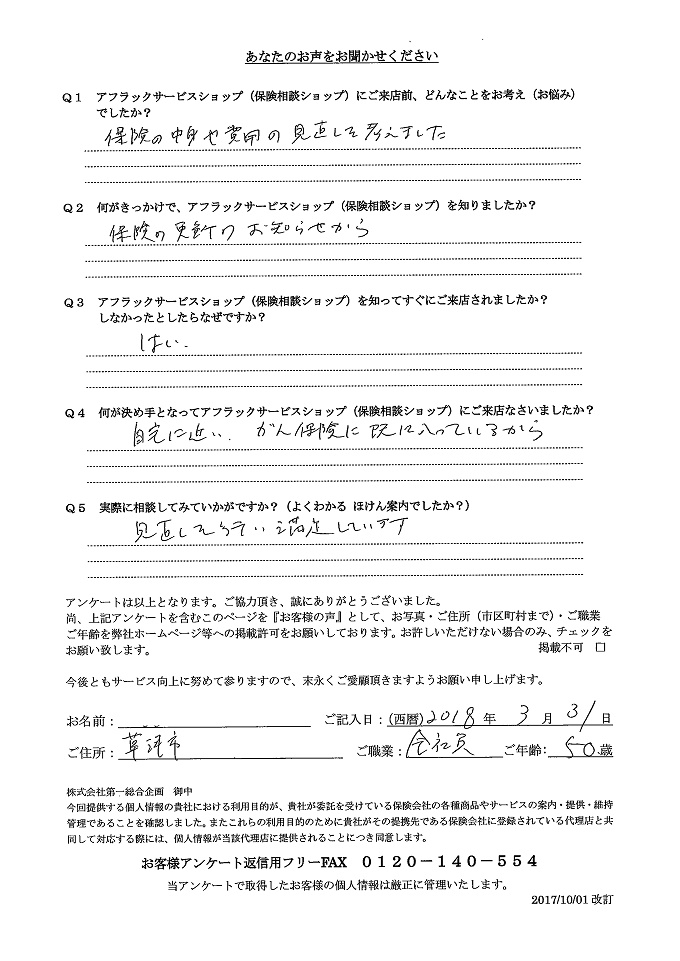 あなたのお声をお聞かせください
Q1 アフラックサービスショップ(保険相談ショップ)にご来店前、どんなことをお考え(お悩み)
でしたか?
保険の中身や費用の見直しを考えました
Q2 何がきっかけで、アフラックサービスショップ(保険相談ショップ)を知りましたか?
保険の更新のお知らせから
Q3 アフラックサービスショップ(保険相談ショップ)を知ってすぐにご来店されましたか?
しなかったとしたらなぜですか?
はい.
Q4 何が決め手となってアフラックサービスショップ(保険相談ショップ)にご来店なさいましたか?
自宅に近い. がん保険に既に入っているから
Q5 実際に相談してみていかがですか?(よくわかる ほけん案内でしたか?)
見直してもらい満足しています
アンケートは以上となります。ご協力頂き、誠にありがとうございました。
尚、上記アンケートを含むこのページを『お客様の声』として、お写真・ご住所(市区町村まで)・ご職業
ご年齢を弊社ホームページ等への掲載許可をお願いしております。お許しいただけない場合のみ、チェックを
お願い致します。 掲載不可 □
今後ともサービス向上に努めて参りますので、末永くご愛顧頂きますようお願い申し上げます。
お名前: ご記入日:(西暦)2018年 3月 31日
ご住所:草津市 ご職業:会社員 ご年齢:50歳
株式会社第一総合企画 御中
今回提供する個人情報の貴社における利用目的が、貴社が委託を受けている保険会社の各種商品やサービスの案内・提供・維持
管理であることを確認しました。またこれらの利用目的のために貴社がその提携先である保険会社に登録されている代理店と共
同して対応する際には、個人情報が当該代理店に提供されることにつき同意します。
お客様アンケート返信用フリーFAX 0120-140-554
当アンケートで取得したお客様の個人情報は厳正に管理いたします。
2017/10/01 改訂